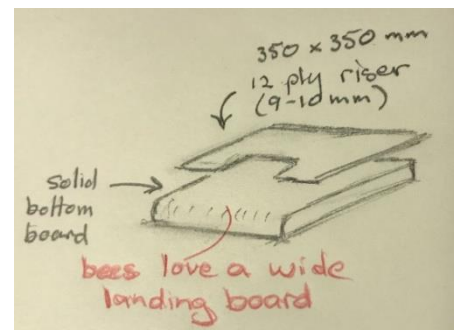 350 x 350 mm
12 ply riser
(9-10 mm)
solid
bottom
board
bees love a wide
landing board